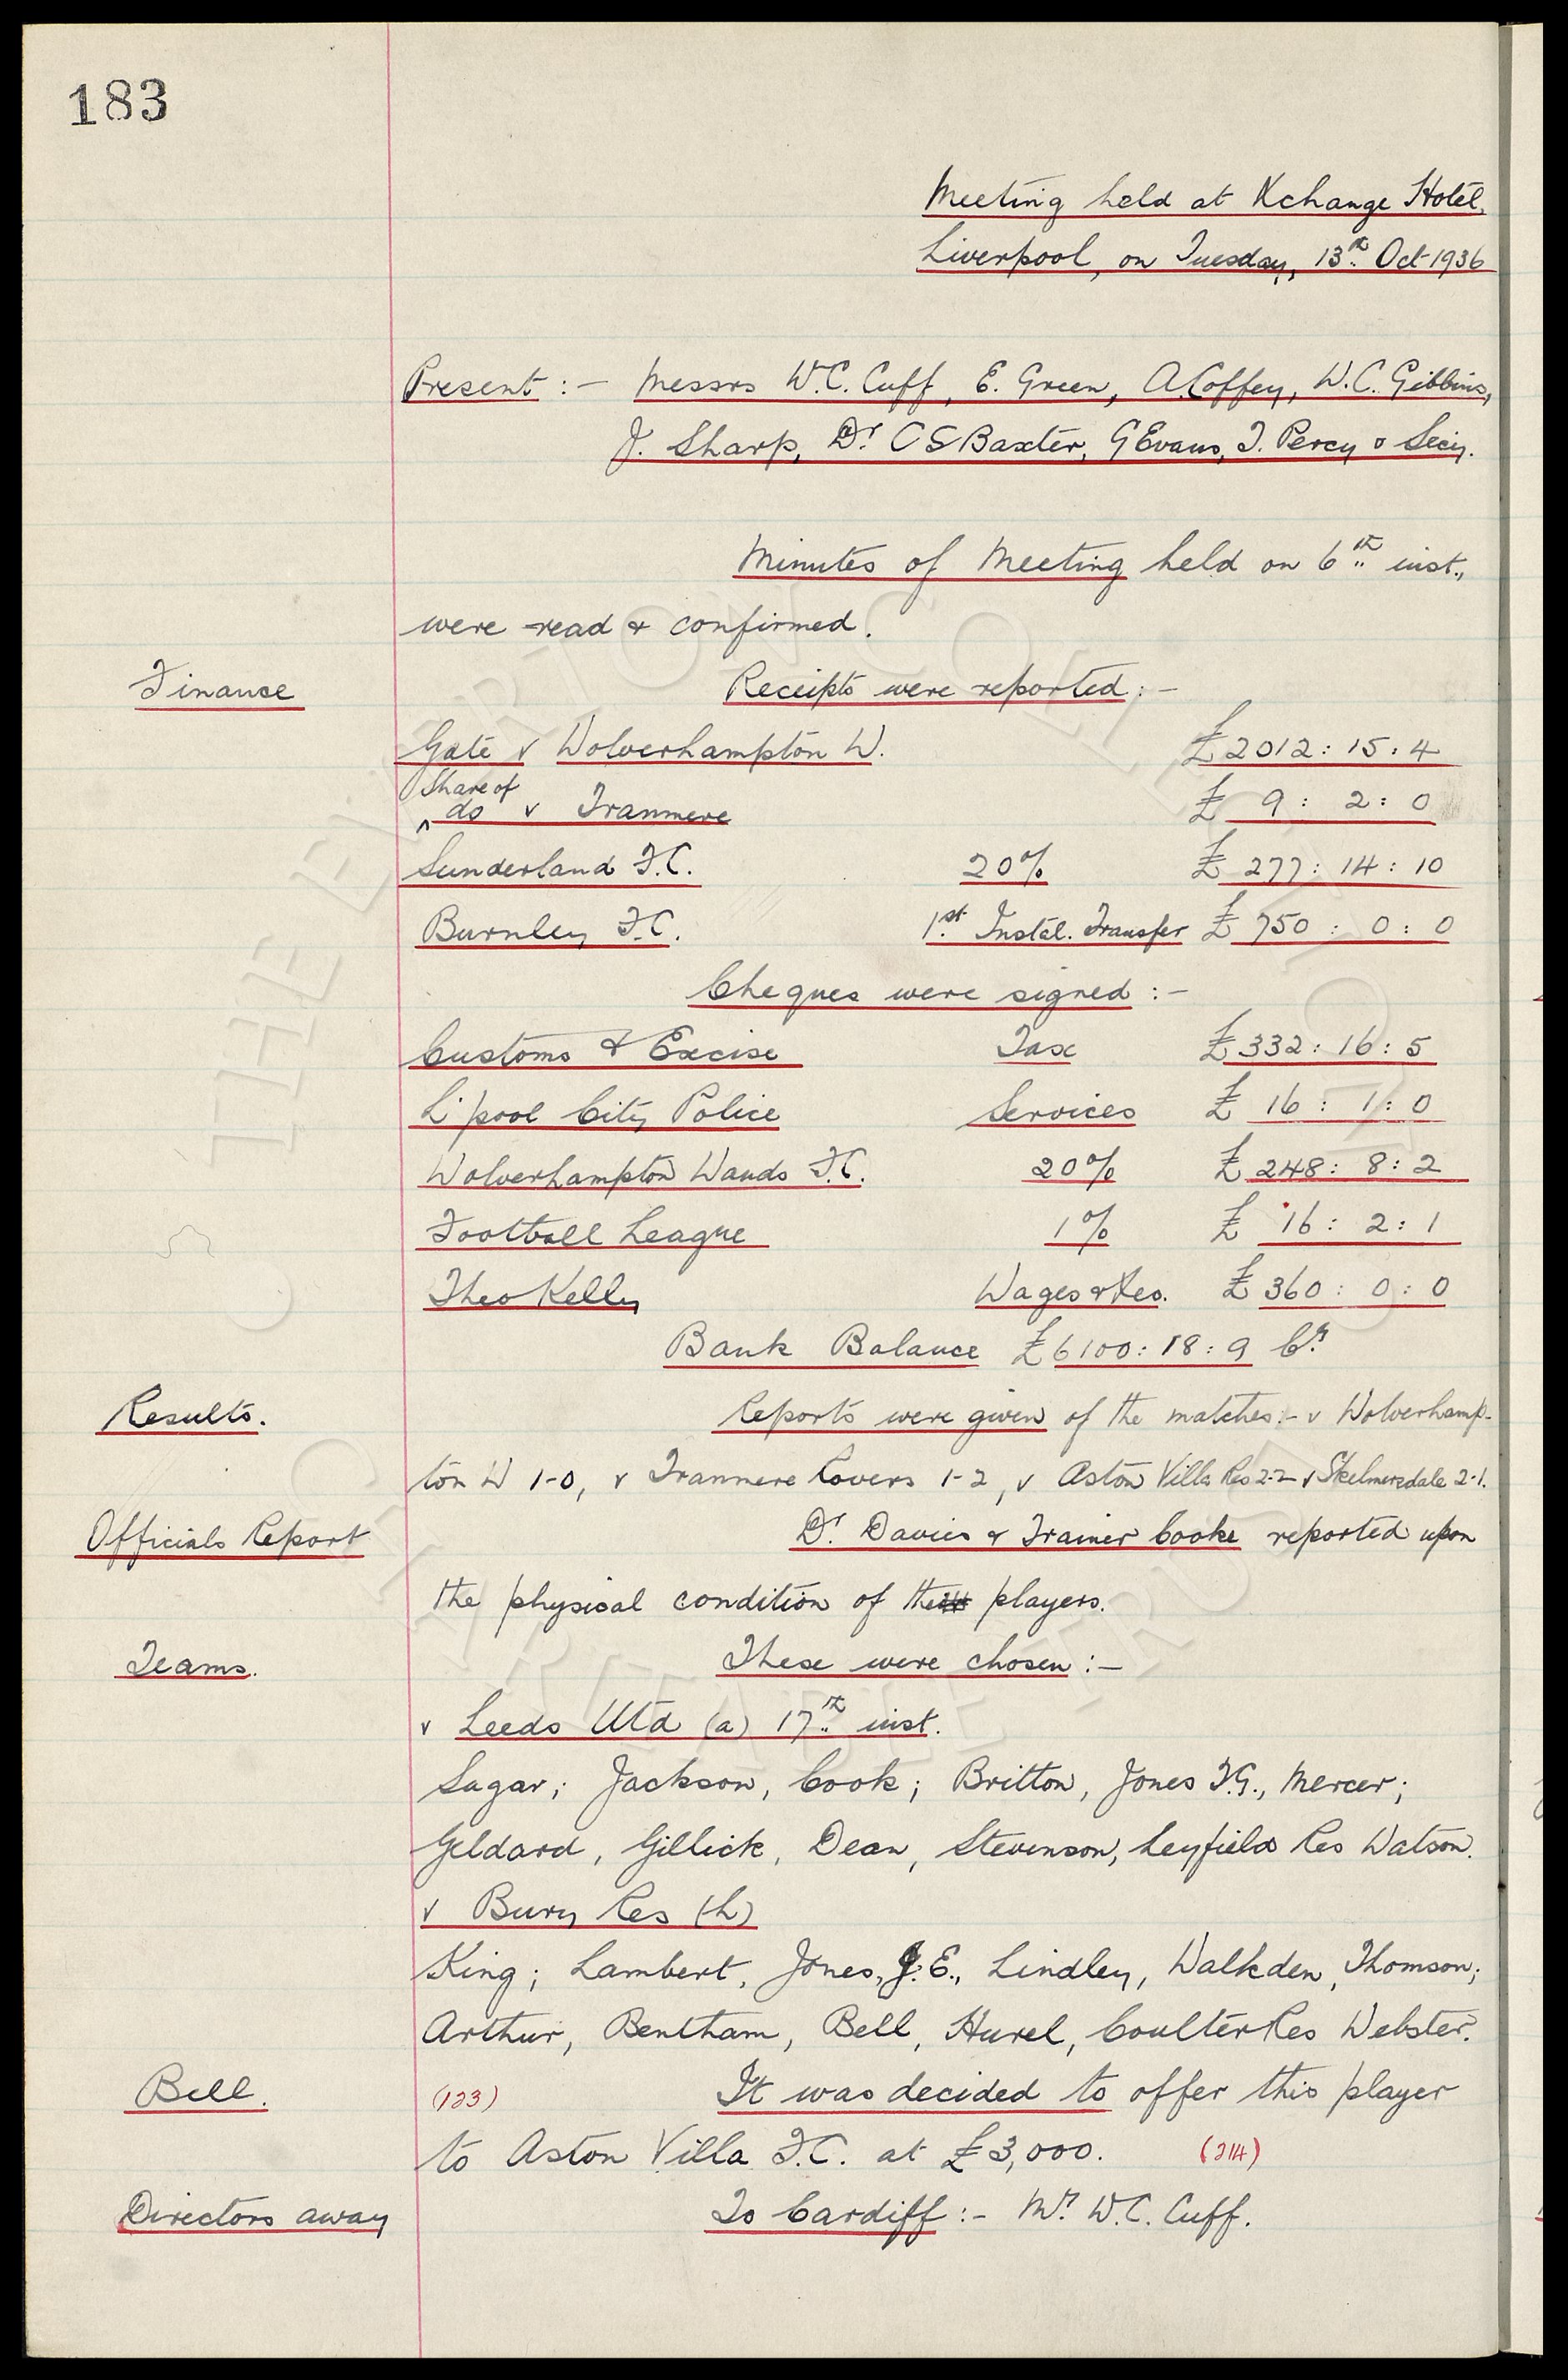 183
Meeting held at Xchange Hotel,
Liverpool, on Tuesday, 13th Oct 1936
Present :- Messrs W.C. Cuff, E. Green, A. Coffey, W.C. Gibbins,
J. Sharp, Dr C S Baxter, G Evans, T. Percy & Secy.
Minutes of Meeting held on 6th inst.,
were read & confirmed.
Finance Receipts were reported :-
Gate v Wolverhampton W. £2012 : 15 : 4
Share of
do v Tranmere £ 9 : 2 : 0
Sunderland F.C. 20% £ 277 : 14 : 10
Burnley F.C. 1st Instal. Transfer £ 750 : 0 : 0
Cheques were signed :-
Customs & Excise Tax £ 332 : 16 : 5
L'pool City Police Services £ 16 : 1 : 0
Wolverhampton Wands F.C. 20% £ 248 : 8 : 2
Football League 1% £ 16 : 2 : 1
Theo Kelly Wages & Res. £ 360 : 0 : 0
Bank Balance £6100 : 18 : 9 Cr
Results. Reports were given of the matches :- v Wolverhamp-
ton W 1-0, v Tranmere Rovers 1-2, v Aston Villa Res 2-2 v Skelmersdale 2-1.
Officials Report Dr. Davies & Trainer Cooke reported upon
the physical condition of the players.
Teams. These were chosen :-
v Leeds Utd (a) 17th inst.
Sagar; Jackson, Cook; Britton, Jones T.G., Mercer;
Geldard, Gillick, Dean, Stevenson, Leyfield Res Watson.
v Bury Res (h)
King; Lambert, Jones, J.E., Lindley, Walkden, Thomson;
Arthur, Bentham, Bell, Hurel, Coulter Res Webster.
Bell. (123) It was decided to offer this player
to Aston Villa F.C. at £3,000. (214)
Directors away To Cardiff :- Mr. W.C. Cuff.